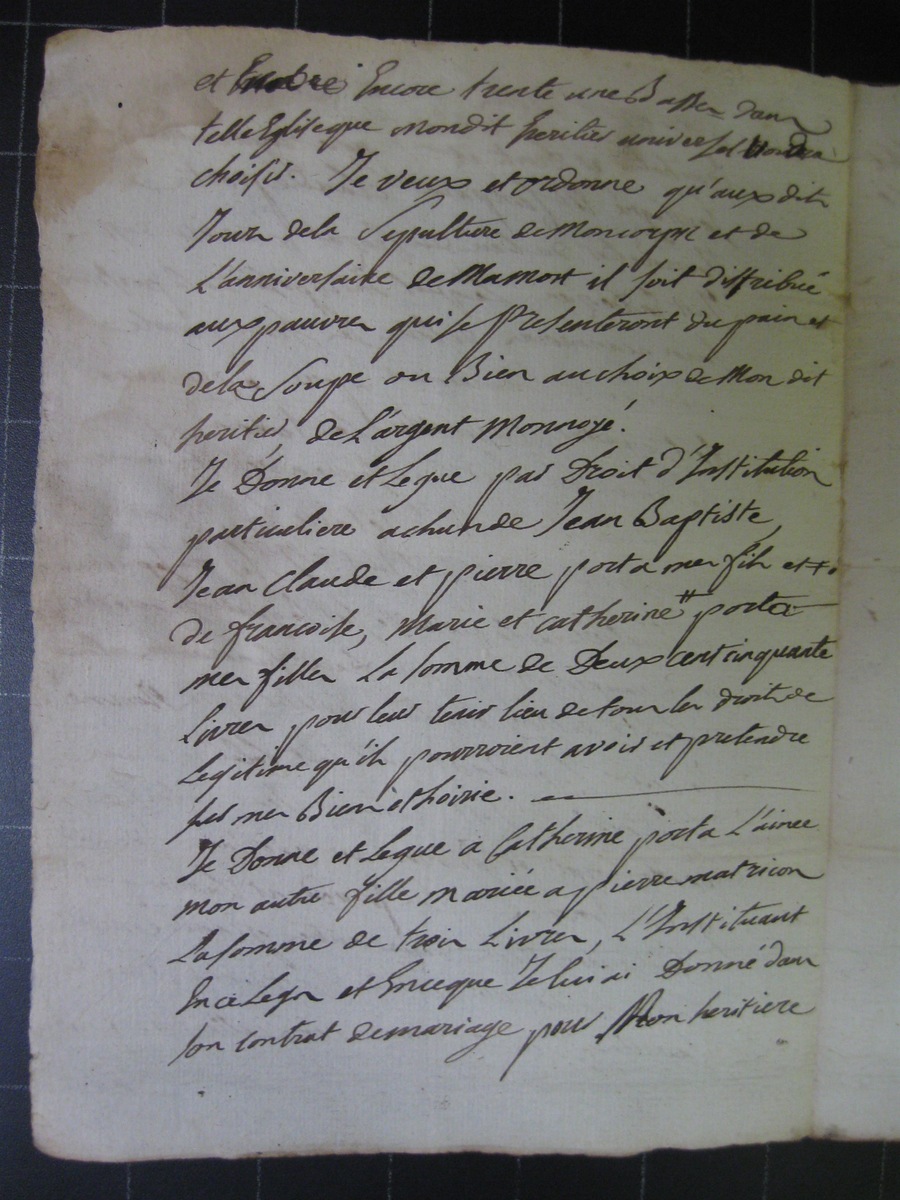 et Encore trente une Basses dans
telle Eglise que mondit heritier universel voudra
choisir. Je veux et ordonne qu'aux dits
Jours dela Sepulture de Mon corps et de
L'anniversaire de Ma mort il soit distribué
aux pauvres qui se Presenteront du pain et
dela Soupe ou Bien au choix de Mon dit
heritier de L'argent Monnoyé.
Je Donne et Legue par Droit d'Institution
particuliere a chun de Jean Baptiste,
Jean Claude et pierre porta mes fils et
de francoise, Marie et catherine # porta
mes filles La somme de Deux cent cinquante
Livres pour leur tenir lieu de tous les droits de
Legitime qu'ils pourroient avoir et pretendre
sur mes Biens et hoirie.
Je Donne et Legue a Catherine porta L'ainee
mon autre fille mariée a pierre matricon
La somme de trois Livres, L'Instituant
En ce Legs et En ce que Je lui ai Donné dans
son contrat de mariage pour Mon heritiere